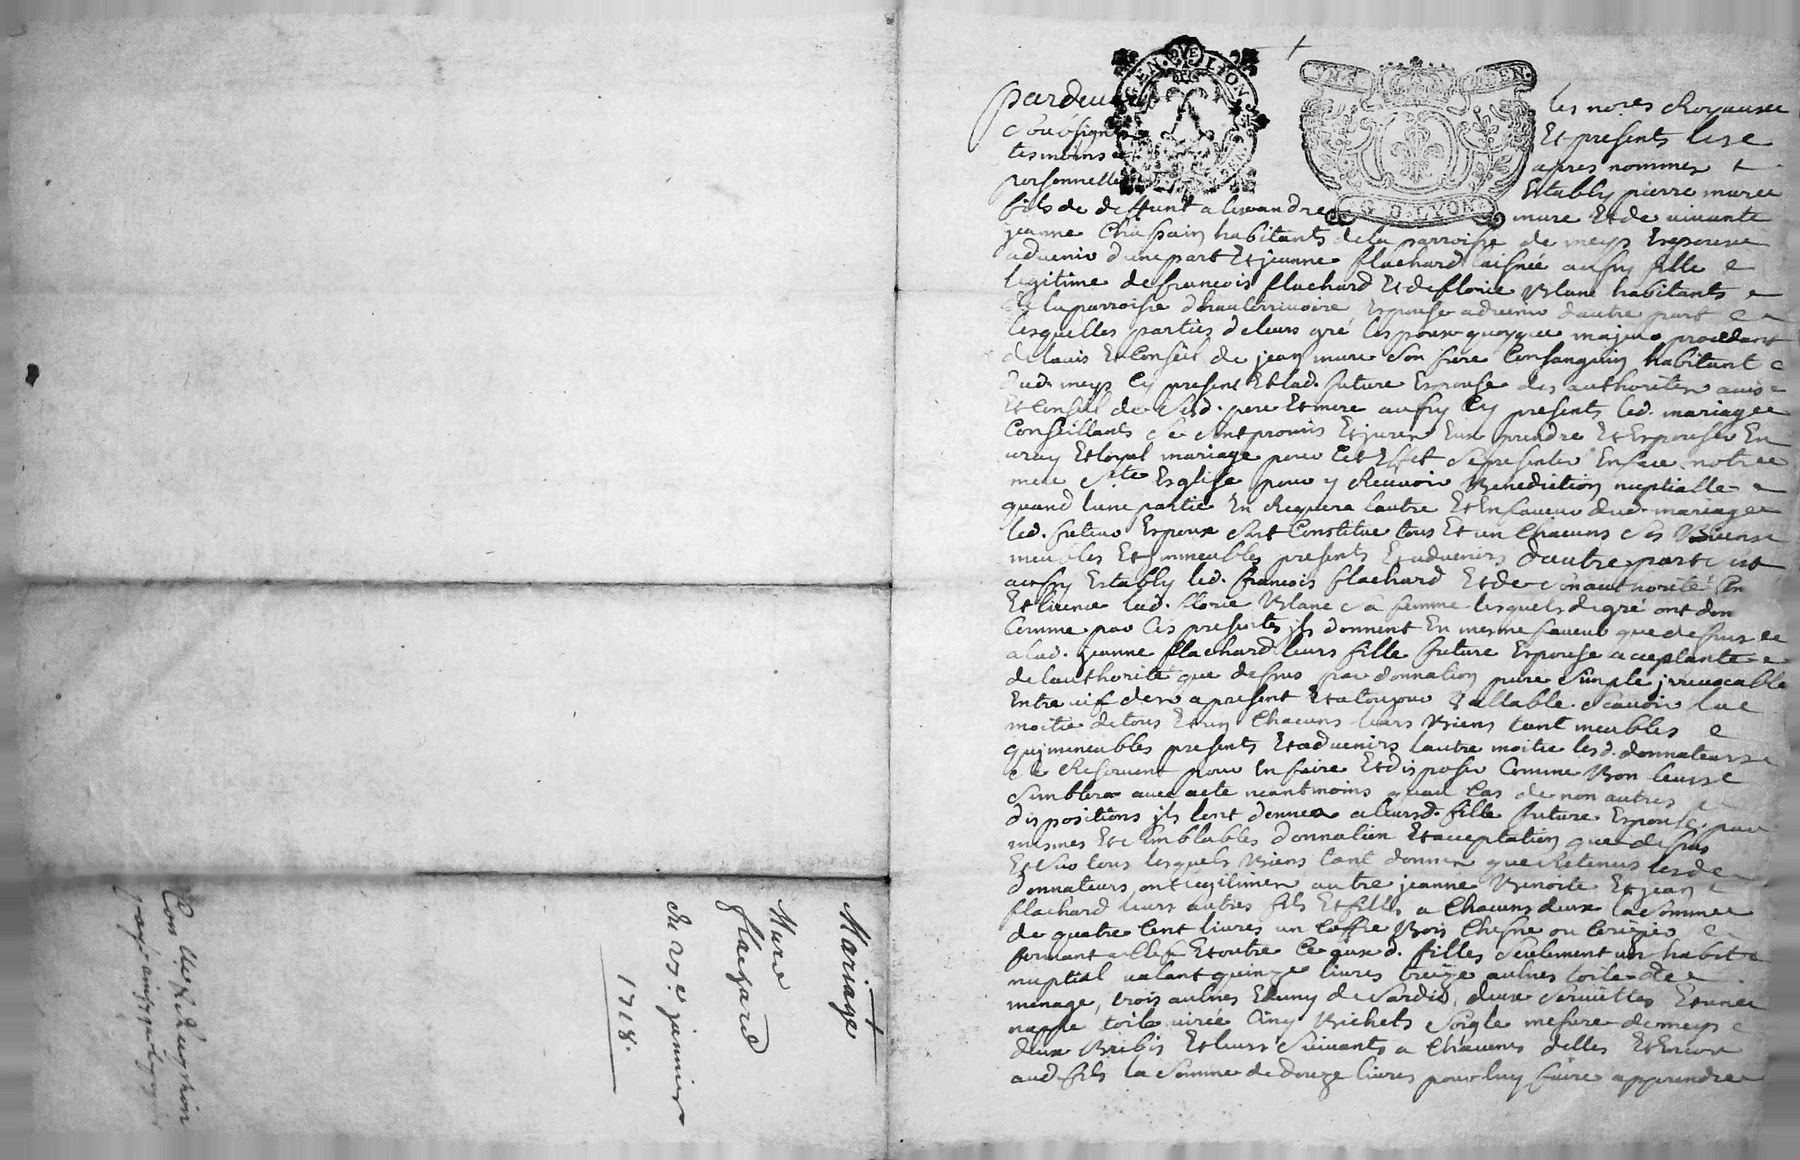 Mariage
Mure
flachard
du 25e janvier
1718.
GEN. DE LYON
GEN.
G. D. LYON
pardeva les no.res Royaux
soussign Et presents les
tesmoins apres nommes
personnelle Estably pierre mure
fils de deffunt alexandre mure Et de vivante
jeanne Chirpain habitants de la parroisse de meys Espoux
advenir d'une part Et jeanne flachard laisnée aussy fille
legitime de francois flachard Et de florie Blanc habitants
de la parroisse d'hauterivoire Espouse advenir d'autre part
lesquelles parties de leurs gré lespoux quoyque majeur procedant
de lavis Et Conseil de jean mure son frere Consanguin habitant
dud. meys Cy present Et lad. future Espouse des authorites avis
Et Conseil de sesd. pere Et mere aussy Cy presents led. mariage
Conseillants se sont promis Et jurer Eux prendre Et Espouser En
vray Et loyal mariage pour Cet Effet se presenter En face notre
mere ste Esglise pour y Recevoir Benediction nuptialle
quand lune partie En Requera lautre Et En faveur dud. mariage
led. futeur Espoux sest Constitue tous Et un Chacuns ses Biens
meubles Et immeubles presents Et advenirs d'autre part
aussy Estably led. francois flachard Et de son authorité
Et licence lad. florie Blanc sa femme lesquels de gré ont don
Comme par Ces presentes ils donnent En mesme faveur que dessus
a lad. jeanne flachard leurs fille future Espouse acceptante
de lauthorité que dessus par donnation pure simple jrrevocable
Entre vif des a present Et a toujour vallable scavoir la
moitie de tous Et un Chacuns leurs Biens tant meubles
qu'jmmeubles presents Et advenirs lautre moitie lesd. donnateurs
se Reservent pour En faire Et disposer Comme Bon leurs
semblera avec acte neantmoins quau Cas de non autres
dispositions ils lont donnes a leursd. fille future Espouse par
mesmes Et semblables donnation Et acceptation que dessus
Et sur tous lesquels Biens tant donnes que Retenus lesd
donnateurs ont legitimer autre jeanne Benoite Et jean
flachard leurs autres fils Et filles a Chacuns deux la somme
de quatre Cent livres un Coffre Bois Chesne ou Cerizier
fermant a Clef Et outre Ce aux d. filles seulement un habit
nuptial valant quinze livres treize aulnes toile de
menage, trois aulnes de serviettes Et une
nappe toile Cinq Bichets soigle mesure de meys
deux Brebis Et leurs suivants a Chacunes delles Et Encore
aud. fils la somme de douze livres pour luy faire apprendre